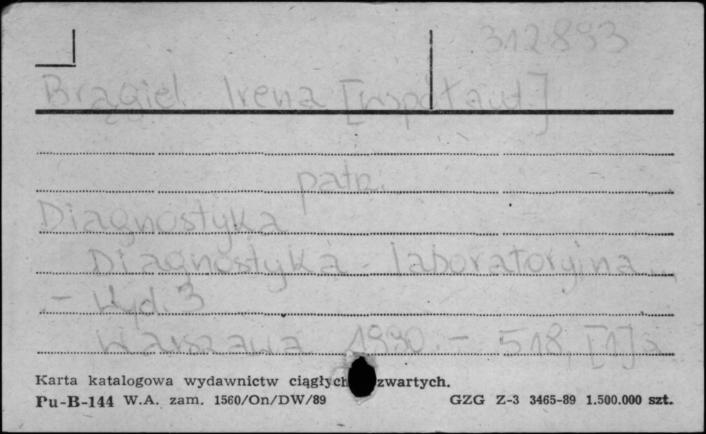 312893
Brągiel Irena [współaut.]
patrz.
Diagnostyka
Diagnostyka laboratoryjna...
- Wyd. 3
Warszawa 1990. - 518, [1] s.
Karta katalogowa wydawnictw ciągłych zwartych.
Pu-B-144 W.A. zam. 1560/On/DW/89 GZG Z-3 3465-89 1.500.000 szt.